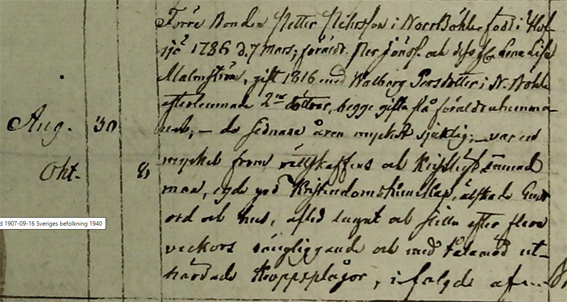 Förre Bonden Petter Pehrsson i Norrböhle född i Hof-
sjö 1786 d. 7 Mars, föräldr. Per Jönss. och dess h. Anna Lisa
Malmström, gift 1816 med Walborg Persdotter i N. Böhle
efterlemnar 2ne döttrar, begge gifta på föräldrahemma-
net; – de sednare åren mycket sjuklig; – var en
Aug. 30
mycket from rättskaffens och Kristligt sinnad
Okt. 8
man, egde god Kristendomskunskap, älskade Guds
ord och hus, afled lugnt och stilla efter flera
d 1907-09-16 Sveriges befolkning 1940
veckors sängliggande och med tålamod ut-
härdade kroppsplågor, i följd af